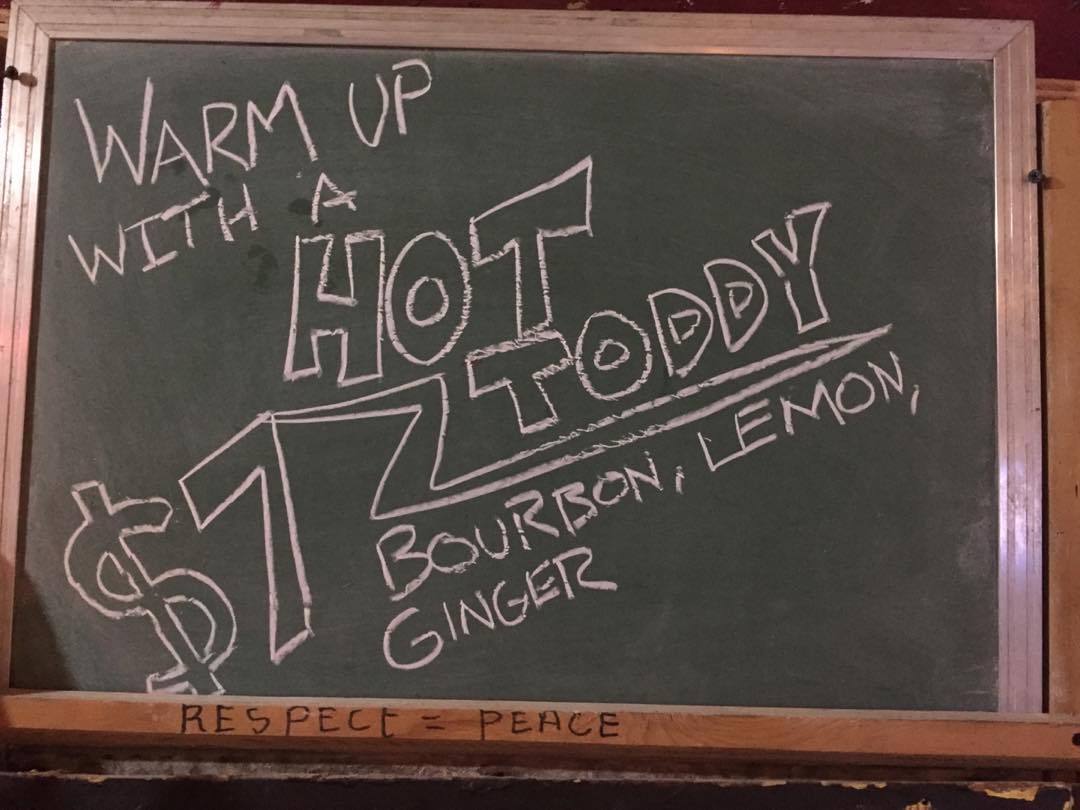 WARM UP
WITH A
HOT
TODDY
$7
BOURBON, LEMON,
GINGER
RESPECT = PEACE